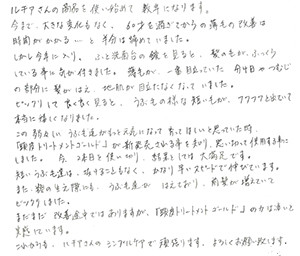 ルチアさんの商品を使い始めて 数年になります。
今まで、大きな変化もなく、60才を過ぎてからの薄毛の改善は
時間がかかる…と 半分は諦めていました。
しかし今年に入り、ふと洗面台の鏡を見ると、髪の毛が、ふっくら
している事に気が付きました。薄毛が、一番目立っていた 分け目やつむじ
の部分に髪がはえ、地肌が目立たなくなっていました。
ビックリして良く良く見ると、うぶ毛の様な短い毛が、フワフワと出てきて
本当に嬉しくなりました。
この弱々しいうぶ毛達がもっと元気になって育ってほしいと思っていた時、
「頭皮トリートメントゴールド」が新発売される事を知り、思い切って使用する事に
しました。今、2本目を使い切り、結果としては大満足です。
短いうぶ毛達は、抜けることもなく、かなり早いスピードで伸びています。
また、額の生え際にも、うぶ毛達が はえており、前髪が増えていて
ビックリしました。
まだまだ 改善途中ではありますが、「頭皮トリートメントゴールド」の力は凄いと
実感しています。
これからも、ルチアさんのシンプルケアで頑張ります。よろしくお願い致します。